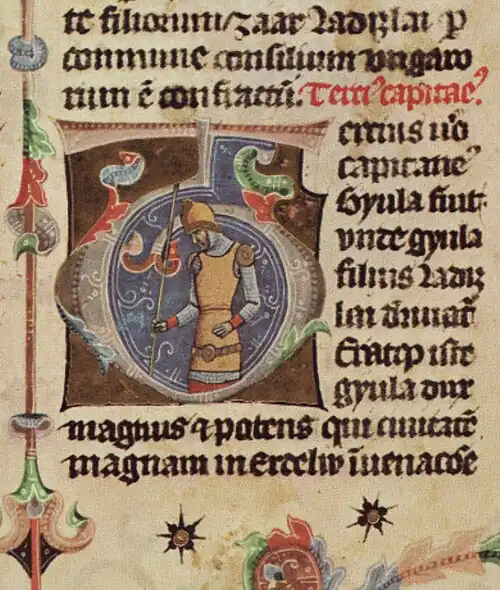 te filiorum / zaar Ladizlai p
commune consilium ungaro
rum ē confractū. Terci⁹ capitae⁹
Tercius u͛o
capitane⁹
Gyula fuit
vnde gyula
filius Ladiz
lai d͛iuat᷑
Erat qp iste
gyula dux
magnus ⁊ potens qui ciuitatē
magnam in Erdelw ī uenacōe